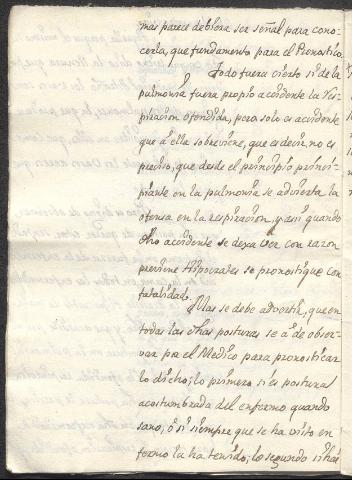 mas parece debiera ser señal para cono-
cerla, que fundamento para el Pronostico.
Todo fuera cierto si de la
pulmonia fuera propio accidente la res-
piracion ofendida, pero solo es accidente
que à ella sobreviene, que es decir no es
preciso, que desde el principio princi-
piante en la pulmonia se advierta la
ofensa en la respiracion, y asi quando
dho accidente se dexa ver con razon
previene Hipocrates se pronostique con
fatalidad.
Mas se debe advertir, que en
todas las dhas posturas se à de obser-
var por el Medico para pronosticar
lo dicho; lo primero si es postura
acostumbrada del enfermo quando
sano; ò si siempre que se ha visto en-
fermo la ha tenido; lo segundo si has